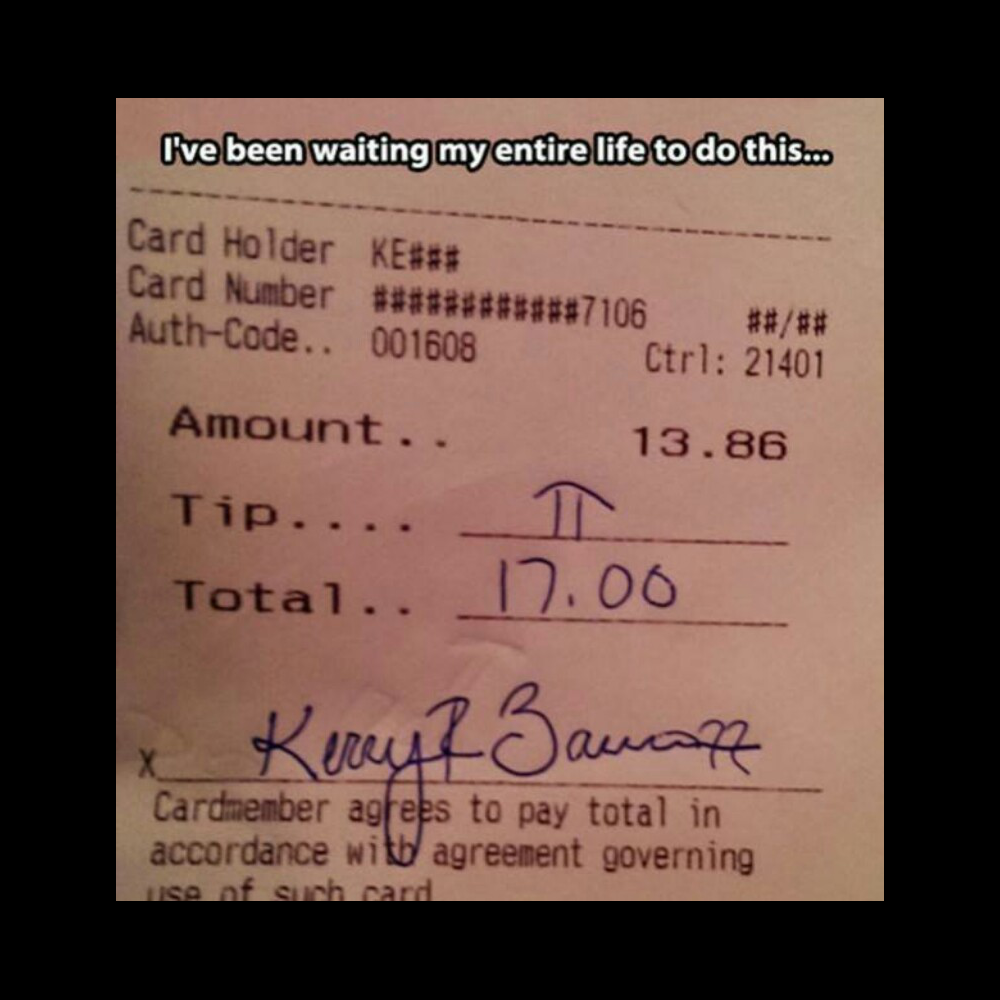 I've been waiting my entire life to do this...
Card Holder KE###
Card Number ############7106 ##/##
Auth-Code.. 001608 Ctrl: 21401
Amount.. 13.86
Tip.... π
Total.. 17.00
X Kerry R
Cardmember agrees to pay total in
accordance with agreement governing
use of such card